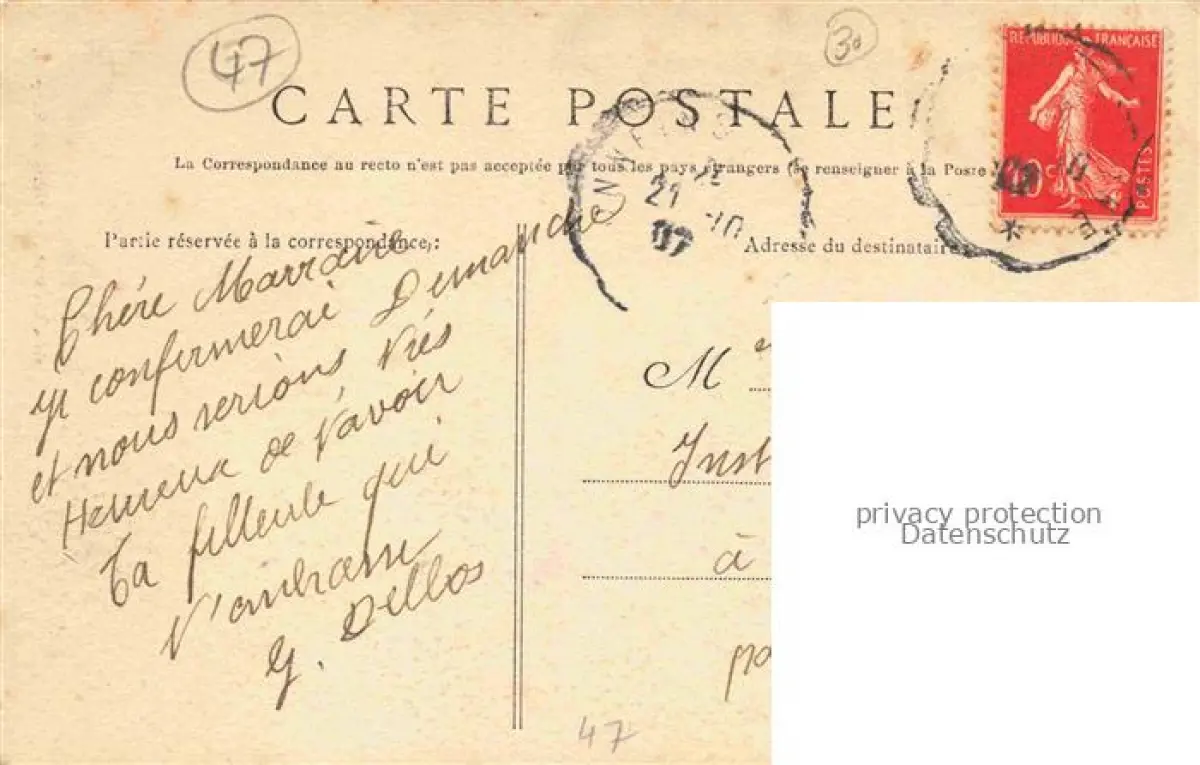 47
30
CARTE POSTALE
La Correspondance au recto n'est pas acceptée par tous les pays étrangers (se renseigner à la Poste
REPUBLIQUE FRANÇAISE
10 c
POSTES
21
10
07
Partie réservée à la correspondance :
Adresse du destinataire
Chére Marraine
je confirmerai Dimanche
et nous serions, très
Hereux de t'avoir
Ta filleule qui
t'embrasse
Y. Delbos
M
Inst
à
47
privacy protection
Datenschutz